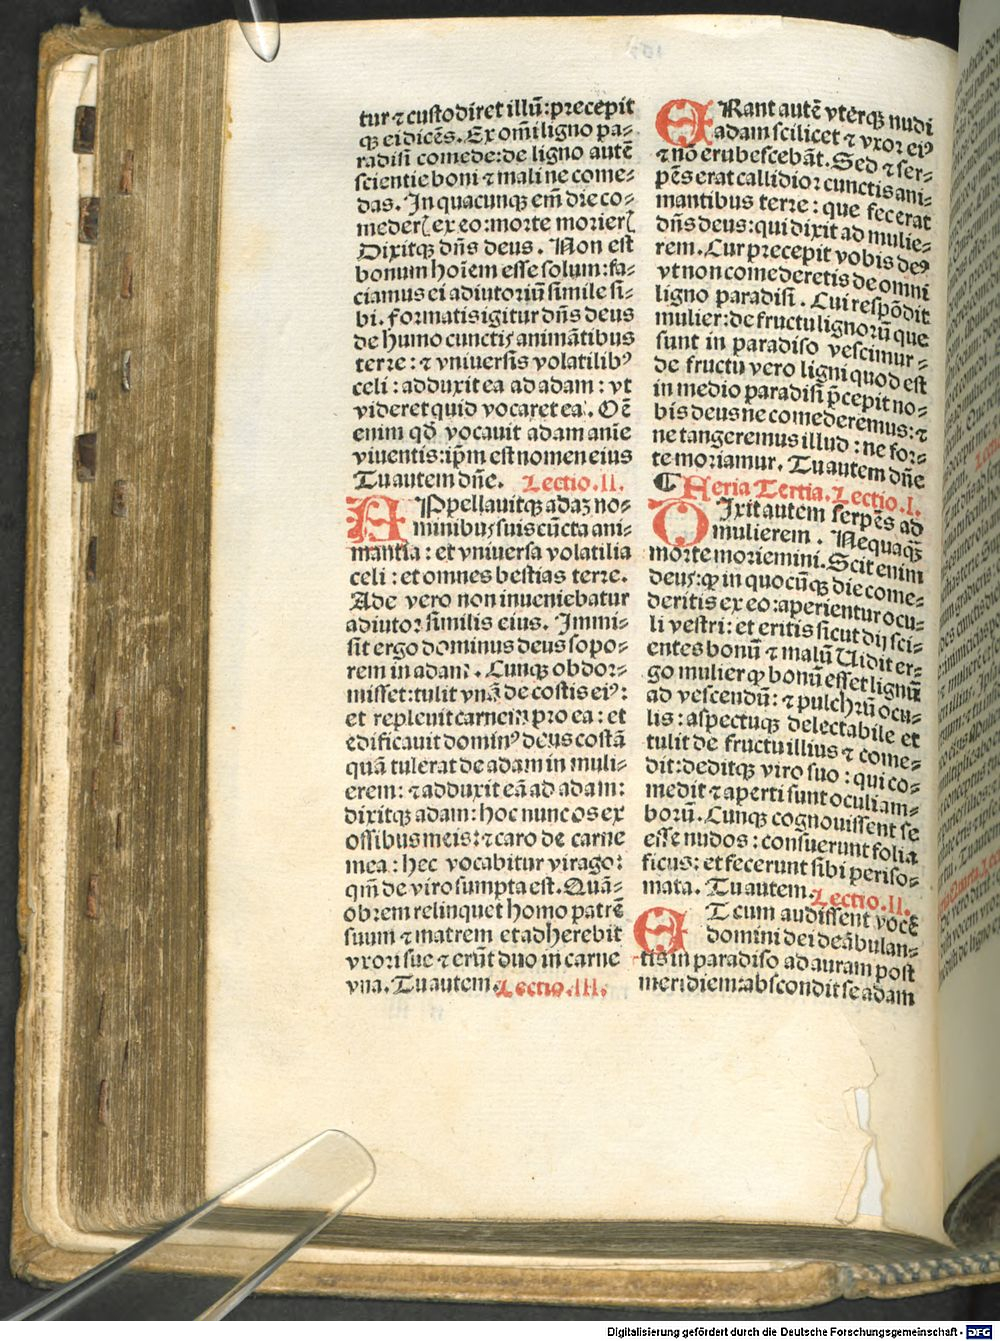 tur ⁊ custodiret illū: precepit
qꝫ ei dicēs. Ex om̄i ligno pa⸗
radisi comede: de ligno autē
scientie boni ⁊ mali ne come⸗
das. In quacunqꝫ em̄ die co⸗
mederꝭ ex eo: morte morierꝭ
Dixitqꝫ dn̄s deus. Non est
bonum hoīem esse solum: fa⸗
ciamus ei adiutoriū simile si⸗
bi. formatis igitur dn̄s deus
de humo cunctis animātibus
terre: ⁊ vniuersis volatilibꝰ
celi: adduxit ea ad adam: vt
videret quid vocaret ea. Om̄e
enim qd̄ vocauit adam anīe
viuentis: ip̄m est nomen eius
Tu autem dn̄e. Lectio. II.
APpellauitqꝫ adaꝫ no⸗
minibus suis cūcta ani⸗
mantia: et vniuersa volatilia
celi: et omnes bestias terre.
Ade vero non inueniebatur
adiutor similis eius. Immi⸗
sit ergo dominus deus sopo⸗
rem in adam. Cunqꝫ obdor⸗
misset: tulit vnā de costis eiꝰ:
et repleuit carnem pro ea: et
edificauit dominꝰ deus costā
quā tulerat de adam in muli⸗
erem: ⁊ adduxit eā ad adam:
dixitqꝫ adam: hoc nunc os ex
ossibus meis: ⁊ caro de carne
mea: hec vocabitur virago:
qm̄ de viro sumpta est. Quā⸗
obrem relinquet homo patrē
suum ⁊ matrem et adherebit
vxori sue ⁊ erūt duo in carne
vna. Tu autem. Lectio. III.
ERant autē vterqꝫ nudi
adam scilicet ⁊ vxor eiꝰ
⁊ nō erubescebāt. Sed ⁊ ser⸗
pēs erat callidior cunctis ani⸗
mantibus terre: que fecerat
dn̄s deus: qui dixit ad mulie⸗
rem. Cur precepit vobis deꝰ
vt non comederetis de omni
ligno paradisi. Cui respōdit
mulier: de fructu lignorū que
sunt in paradiso vescimur⸗
de fructu vero ligni quod est
in medio paradisi p̄cepit no⸗
bis deus ne comederemus: ⁊
ne tangeremus illud: ne for⸗
te moriamur. Tu autem dn̄e
¶ Feria Tertia. Lectio. I.
DIxit autem serpēs ad
mulierem. Nequaqꝫ̄
morte moriemini. Scit enim
deus: ꝙ in quocūqꝫ die come⸗
deritis ex eo: aperientur ocu⸗
li vestri: et eritis sicut dij sci⸗
entes bonū ⁊ malū Uidit er⸗
go mulier ꝙ bonū esset lignū
ad vescendū: ⁊ pulchrū ocu⸗
lis: aspectuqꝫ delectabile et
tulit de fructu illius ⁊ come⸗
dit: deditqꝫ viro suo: qui co⸗
medit ⁊ aperti sunt oculi am⸗
borū. Cunqꝫ cognouissent se
esse nudos: consuerunt folia
ficus: et fecerunt sibi periso⸗
mata. Tu autem. Lectio. II.
ET cum audissent vocē
domini dei deābulan⸗
tis in paradiso ad auram post
meridiem: abscondit se adam
Digitalisierung gefördert durch die Deutsche Forschungsgemeinschaft - DFG